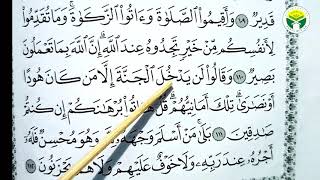 قَدِيرٌ ١٠٩ وَأَقِيمُوا۟ ٱلصَّلَوٰةَ وَءَاتُوا۟ ٱلزَّكَوٰةَ ۚ وَمَا تُقَدِّمُوا۟
لِأَنفُسِكُم مِّنْ خَيْرٍ تَجِدُوهُ عِندَ ٱللَّهِ ۗ إِنَّ ٱللَّهَ بِمَا تَعْمَلُونَ
بَصِيرٌ ١١٠ وَقَالُوا۟ لَن يَدْخُلَ ٱلْجَنَّةَ إِلَّا مَن كَانَ هُودًا
أَوْ نَصَٰرَىٰ ۗ تِلْكَ أَمَانِيُّهُمْ ۗ قُلْ هَاتُوا۟ بُرْهَٰنَكُمْ إِن كُنتُمْ
صَٰدِقِينَ ١١١ بَلَىٰ مَنْ أَسْلَمَ وَجْهَهُۥ وَهُوَ مُحْسِنٌ فَلَهُۥٓ
أَجْرُهُۥ عِندَ رَبِّهِۦ وَلَا خَوْفٌ عَلَيْهِمْ وَلَا هُمْ يَحْزَنُونَ ١١٢